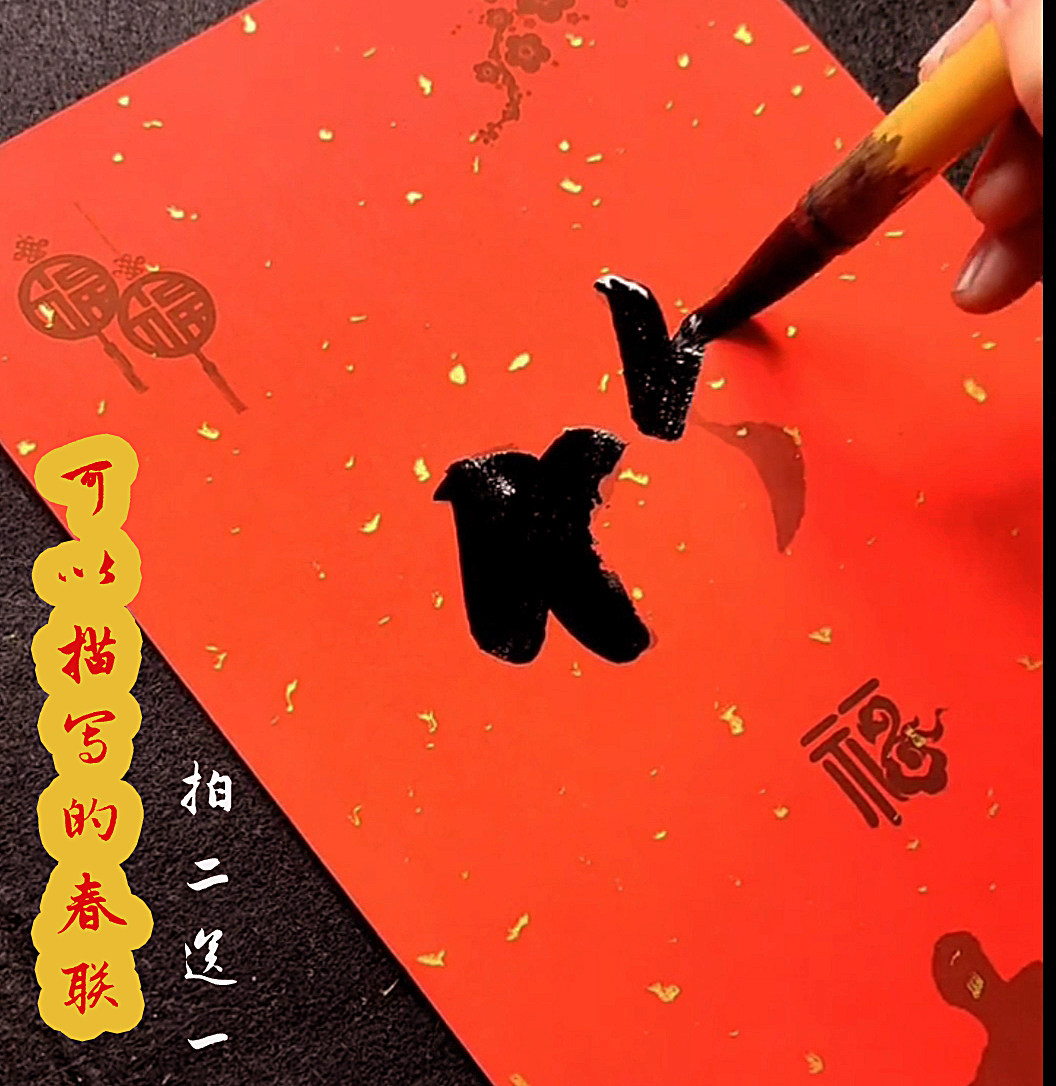 福
福
福
可以描写的春联
拍二送一